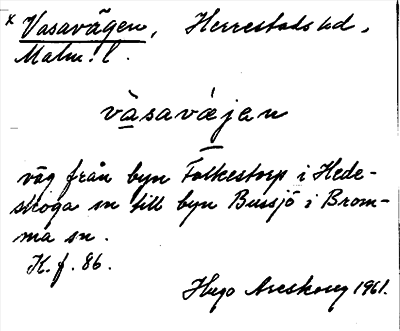 x Vasavägen, Herrestads hd,
Malm. l.
vàsavǽjen
väg från byn Folkestorp i Hede-
skoga sn till byn Bussjö i Brom-
ma sn.
K. f. 86.
Hugo Areskoug 1961.